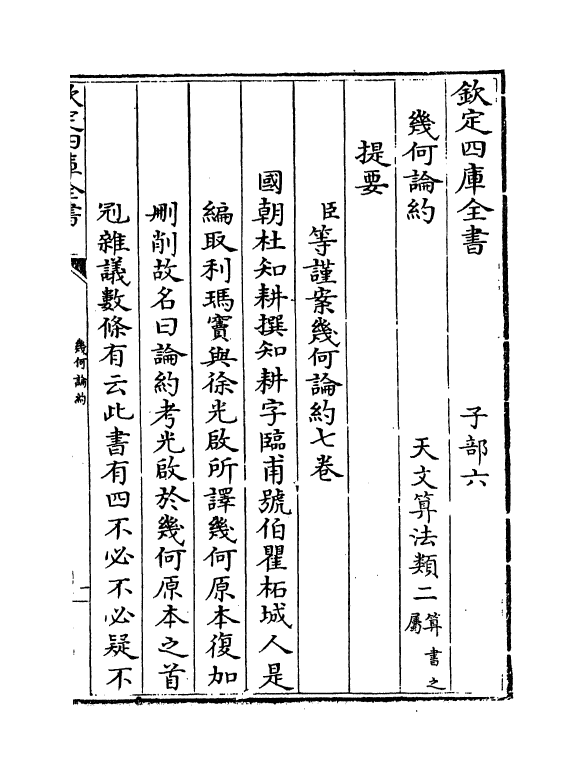 欽定四庫全書 子部六
幾何論約 天文算法類二算書之屬
提要
臣等謹案幾何論約七卷
國朝杜知耕撰知耕字臨甫號伯瞿柘城人是
編取利瑪竇與徐光啟所譯幾何原本復加
刪削故名曰論約考光啟於幾何原本之首
冠雜議數條有云此書有四不必不必疑不
欽定四庫全書
幾何論約
一